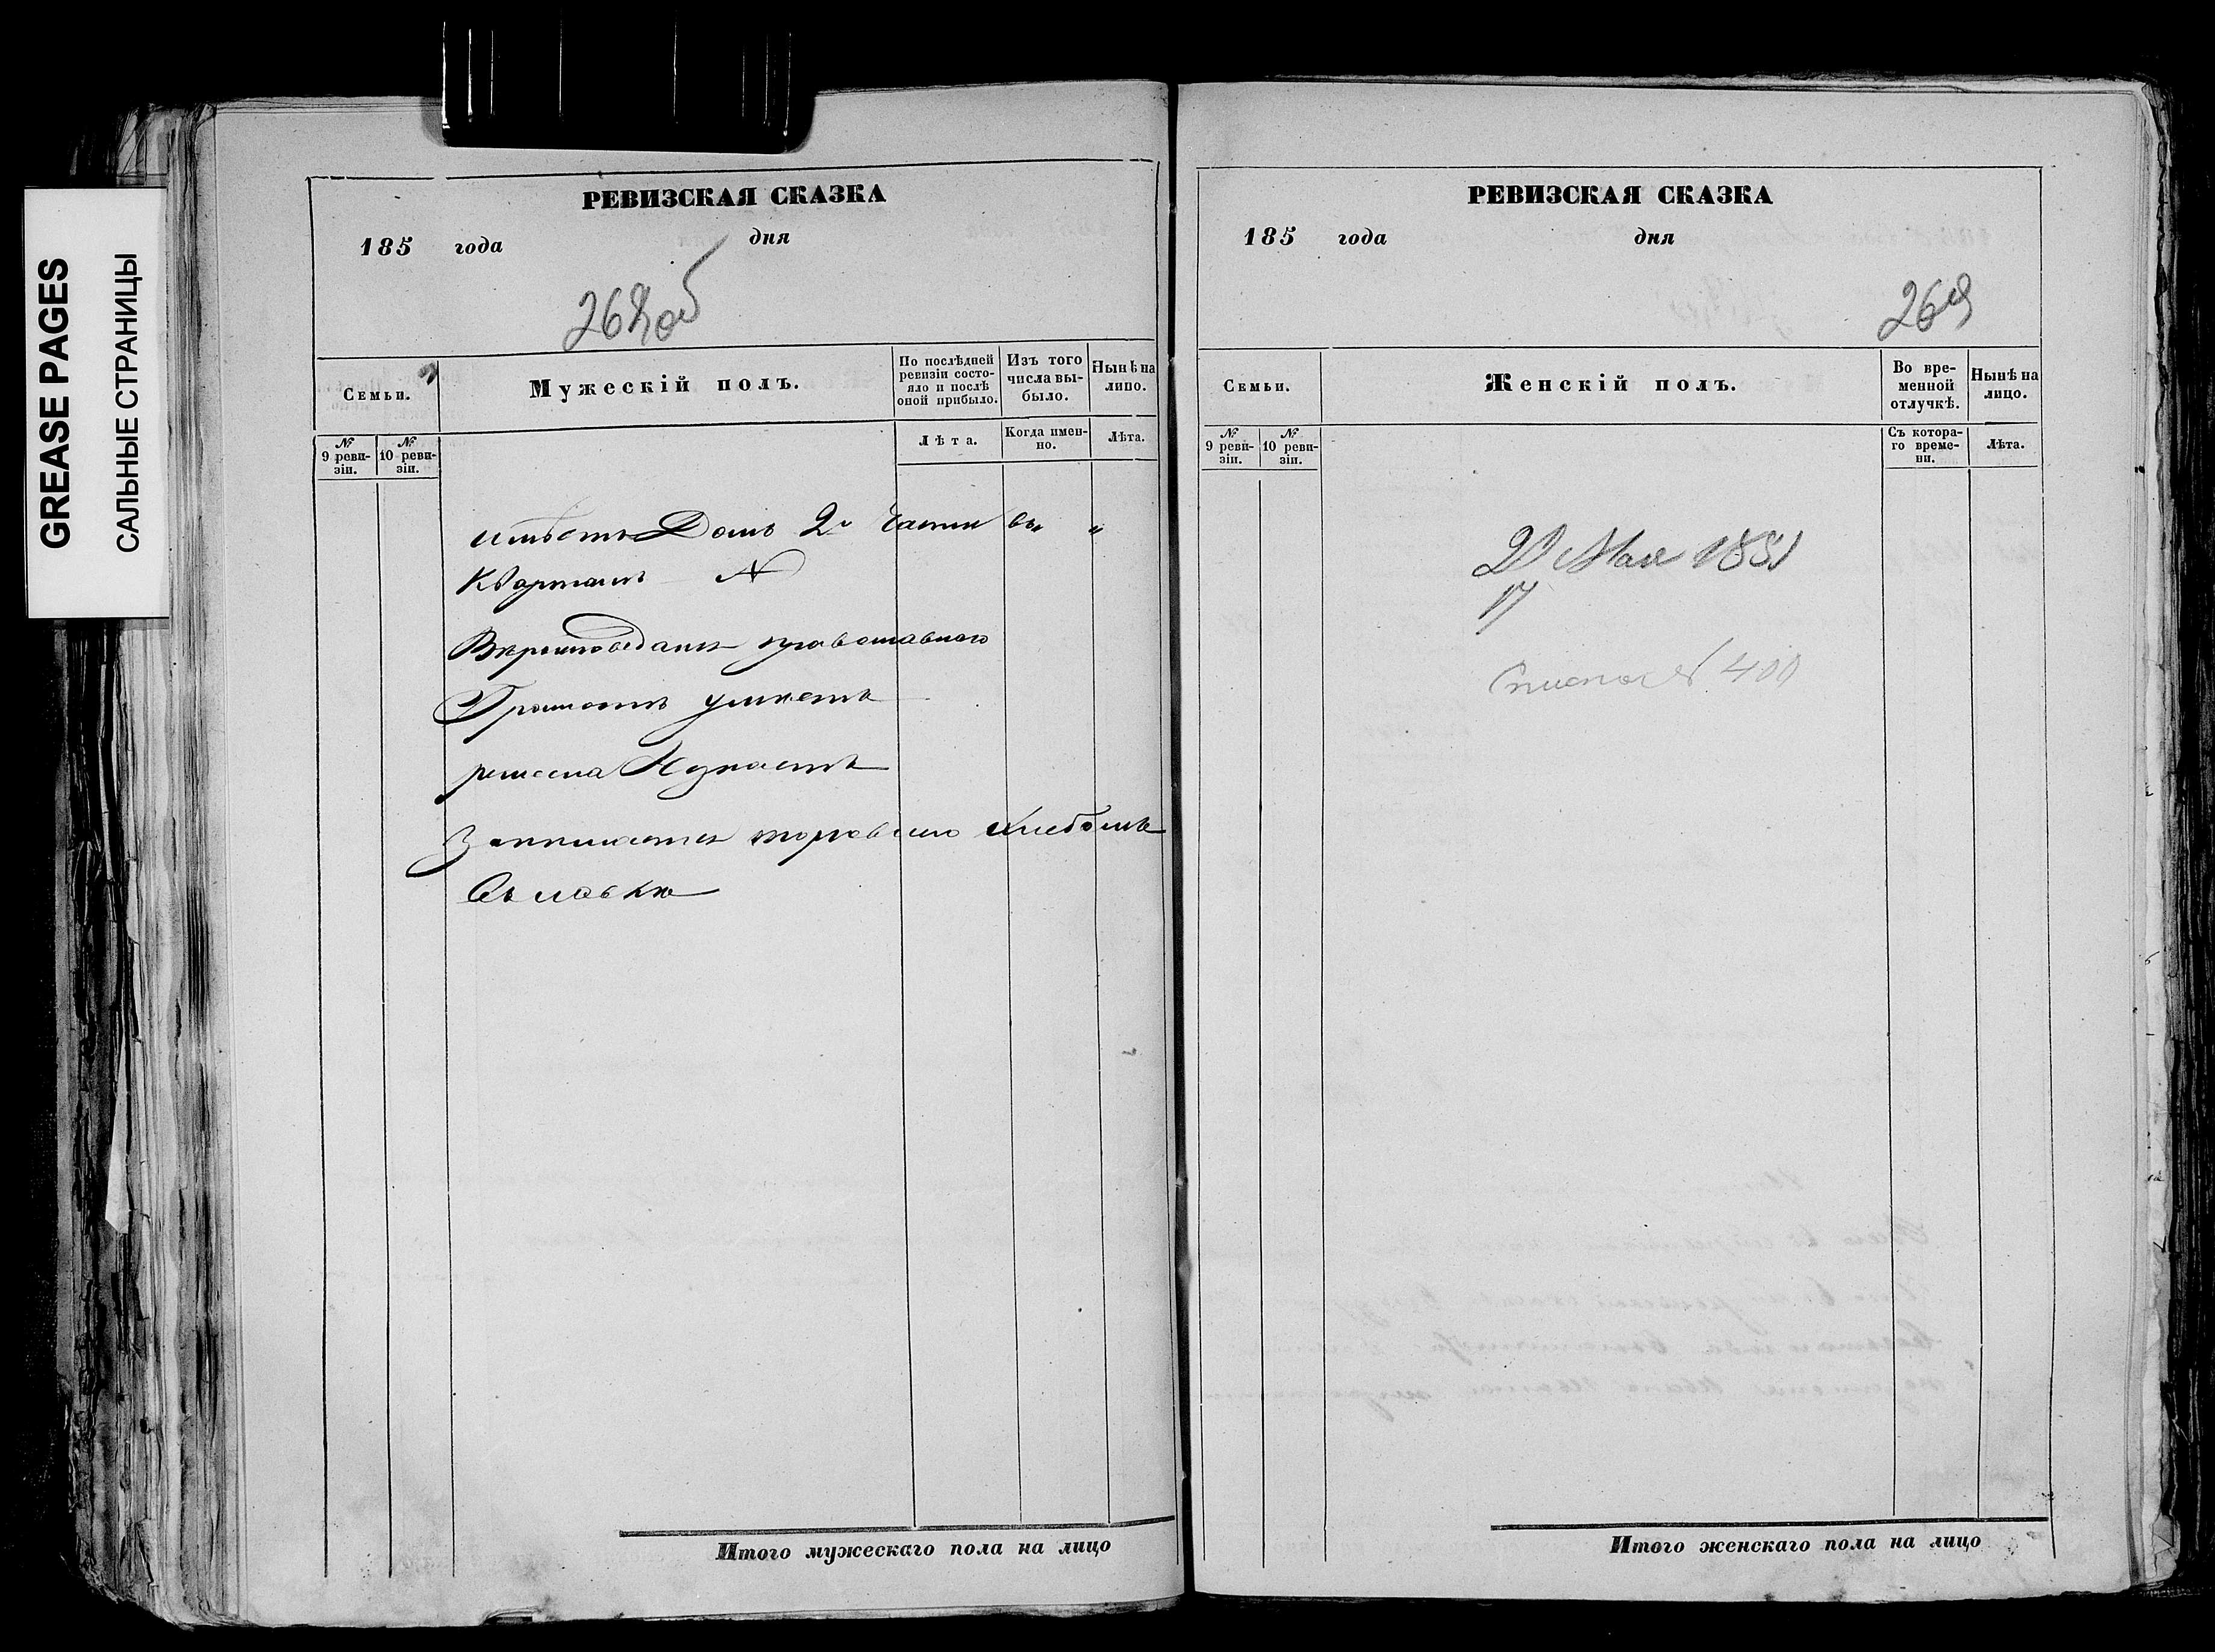 GREASE PAGES
САЛЬНЫЕ СТРАНИЦЫ
РЕВИЗСКАЯ СКАЗКА
185 года дня
268 об
Семьи.
Мужескій полъ.
По послѣдней ревизіи состояло и послѣ оной прибыло.
Изъ того числа выбыло.
Нынѣ на лицо.
№ 9 ревизіи.
№ 10 ревизіи.
Лѣта.
Когда именно.
Лѣта.
имѣетъ Домъ 2й Части въ „
Кварталѣ №
Вѣроисповеданія православнаго
Грамотѣ умѣетъ
ремесла Незнаетъ
Занимается торговлею хлебомъ
Въ лавкѣ
Итого мужескаго пола на лицо
РЕВИЗСКАЯ СКАЗКА
185 года дня
269
Семьи.
Женскій полъ.
Во временной отлучкѣ.
Нынѣ на лицо.
№ 9 ревизіи.
№ 10 ревизіи.
Съ котораго времени.
Лѣта.
Мая 1851
17
№ 400
Итого женскаго пола на лицо